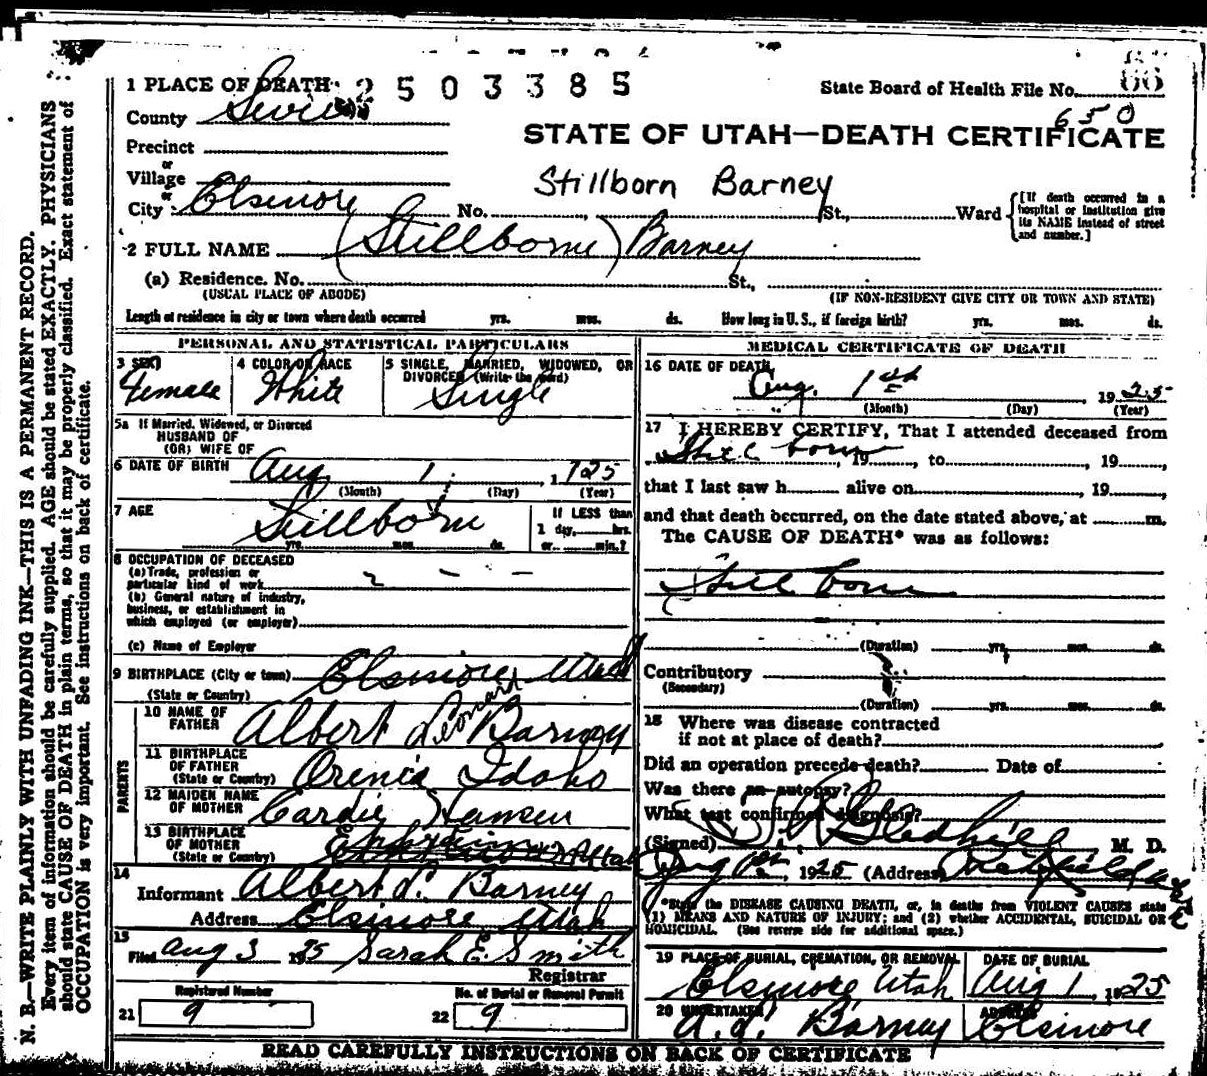 1 PLACE OF DEATH 2503385 State Board of Health File No. 66
County Sevier 650
STATE OF UTAH—DEATH CERTIFICATE
Precinct
or
Village
or
Stillborn Barney
City Elsinore No. St., Ward [If death occurred in a hospital or institution give its NAME instead of street and number.]
2 FULL NAME (Stillborne) Barney
(a) Residence. No. St.,
(USUAL PLACE OF ABODE) (IF NON-RESIDENT GIVE CITY OR TOWN AND STATE)
Length of residence in city or town where death occurred yrs. mos. ds. How long in U. S., if foreign birth? yrs. mos. ds.
PERSONAL AND STATISTICAL PARTICULARS
3 SEX Female
4 COLOR OR RACE White
5 SINGLE, MARRIED, WIDOWED, OR DIVORCED (Write the word) Single
5a If Married, Widowed, or Divorced
HUSBAND OF
(OR) WIFE OF
6 DATE OF BIRTH Aug 1. 1925
(Month) (Day) (Year)
7 AGE Stillborn
yrs. mos. ds.
If LESS than
1 day, hrs.
or min.?
8 OCCUPATION OF DECEASED
(a) Trade, profession or
particular kind of work
(b) General nature of industry,
business, or establishment in
which employed (or employer)
(c) Name of Employer
9 BIRTHPLACE (City or town) Elsinore Utah
(State or Country)
PARENTS
10 NAME OF FATHER Albert Leonard Barney
11 BIRTHPLACE OF FATHER (State or Country) Idaho
12 MAIDEN NAME OF MOTHER Cardie Hansen
13 BIRTHPLACE OF MOTHER (State or Country) Utah
14
Informant Albert L. Barney
Address Elsinore Utah
15
Filed Aug 3 1925 Sarah E. Smith
Registrar
Registered Number
21 9
No. of Burial or Removal Permit
22 9
MEDICAL CERTIFICATE OF DEATH
16 DATE OF DEATH Aug. 1st 1925
(Month) (Day) (Year)
17 I HEREBY CERTIFY, That I attended deceased from
Still born, 19, to, 19,
that I last saw h alive on, 19,
and that death occurred, on the date stated above, at m.
The CAUSE OF DEATH* was as follows:
Still born
(Duration) yrs. mos. ds.
Contributory
(Secondary)
(Duration) yrs. mos. ds.
18 Where was disease contracted
if not at place of death?
Did an operation precede death? Date of
Was there an autopsy?
What test confirmed diagnosis?
(Signed) Gledhill M. D.
Aug 1st, 1925 (Address) Richfield Utah
*State the DISEASE CAUSING DEATH, or, in deaths from VIOLENT CAUSES state
(1) MEANS AND NATURE OF INJURY; and (2) whether ACCIDENTAL, SUICIDAL OR
HOMICIDAL. (See reverse side for additional space.)
19 PLACE OF BURIAL, CREMATION, OR REMOVAL Elsinore Utah
DATE OF BURIAL Aug 1, 1925
20 UNDERTAKER A. L. Barney
ADDRESS Elsinore
READ CAREFULLY INSTRUCTIONS ON BACK OF CERTIFICATE
N. B.—WRITE PLAINLY WITH UNFADING INK—THIS IS A PERMANENT RECORD.
Every item of information should be carefully supplied. AGE should be stated EXACTLY. PHYSICIANS
should state CAUSE OF DEATH in plain terms, so that it may be properly classified. Exact statement of
OCCUPATION is very important. See instructions on back of certificate.